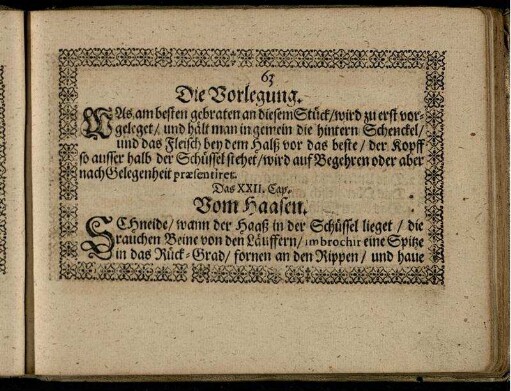 63
Die Vorlegung.
WAs am besten gebraten an diesem Stück / wird zu erst vor-
geleget / und hält man in gemein die hintern Schenckel /
und das Fleisch bey dem Halß vor das beste / der Kopff
so ausser halb der Schüssel stehet / wird auf Begehren oder aber
nach Gelegenheit præsentiret.
Das XXII. Cap.
Vom Haasen.
SChneide / wann der Haaß in der Schüssel lieget / die
rauchen Beine von den Läuffern / imbrochir eine Spitze
in das Rück-Grad / fornen an den Rippen / und haue